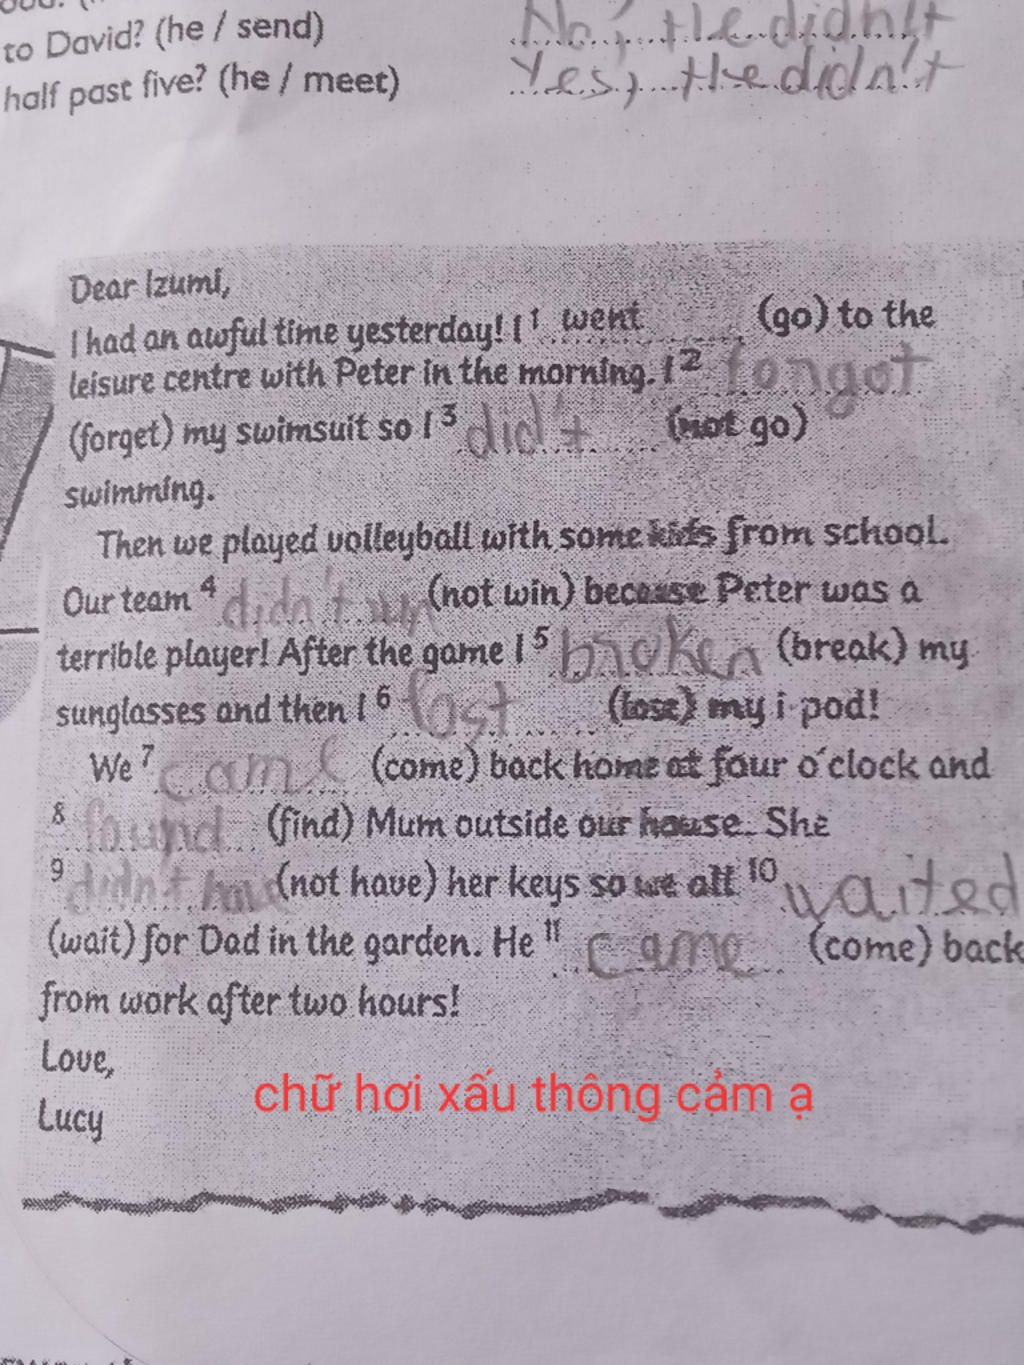 to David? (he / send) No, the didn't
half past five? (he / meet) Yes, the didn't
Dear Izumi,
I had an awful time yesterday! I 1 went (go) to the
leisure centre with Peter in the morning. I 2 fongot
(forget) my swimsuit so I 3 did't (not go)
swimming.
Then we played volleyball with some kids from school.
Our team 4 didn't (not win) because Peter was a
terrible player! After the game I 5 broken (break) my
sunglasses and then I 6 lost (lose) my i pod!
We 7 came (come) back home at four o'clock and
8 found (find) Mum outside our house. She
9 didn't have (not have) her keys so we all 10 waited
(wait) for Dad in the garden. He 11 came (come) back
from work after two hours!
Love,
Lucy
chữ hơi xấu thông cảm ạ